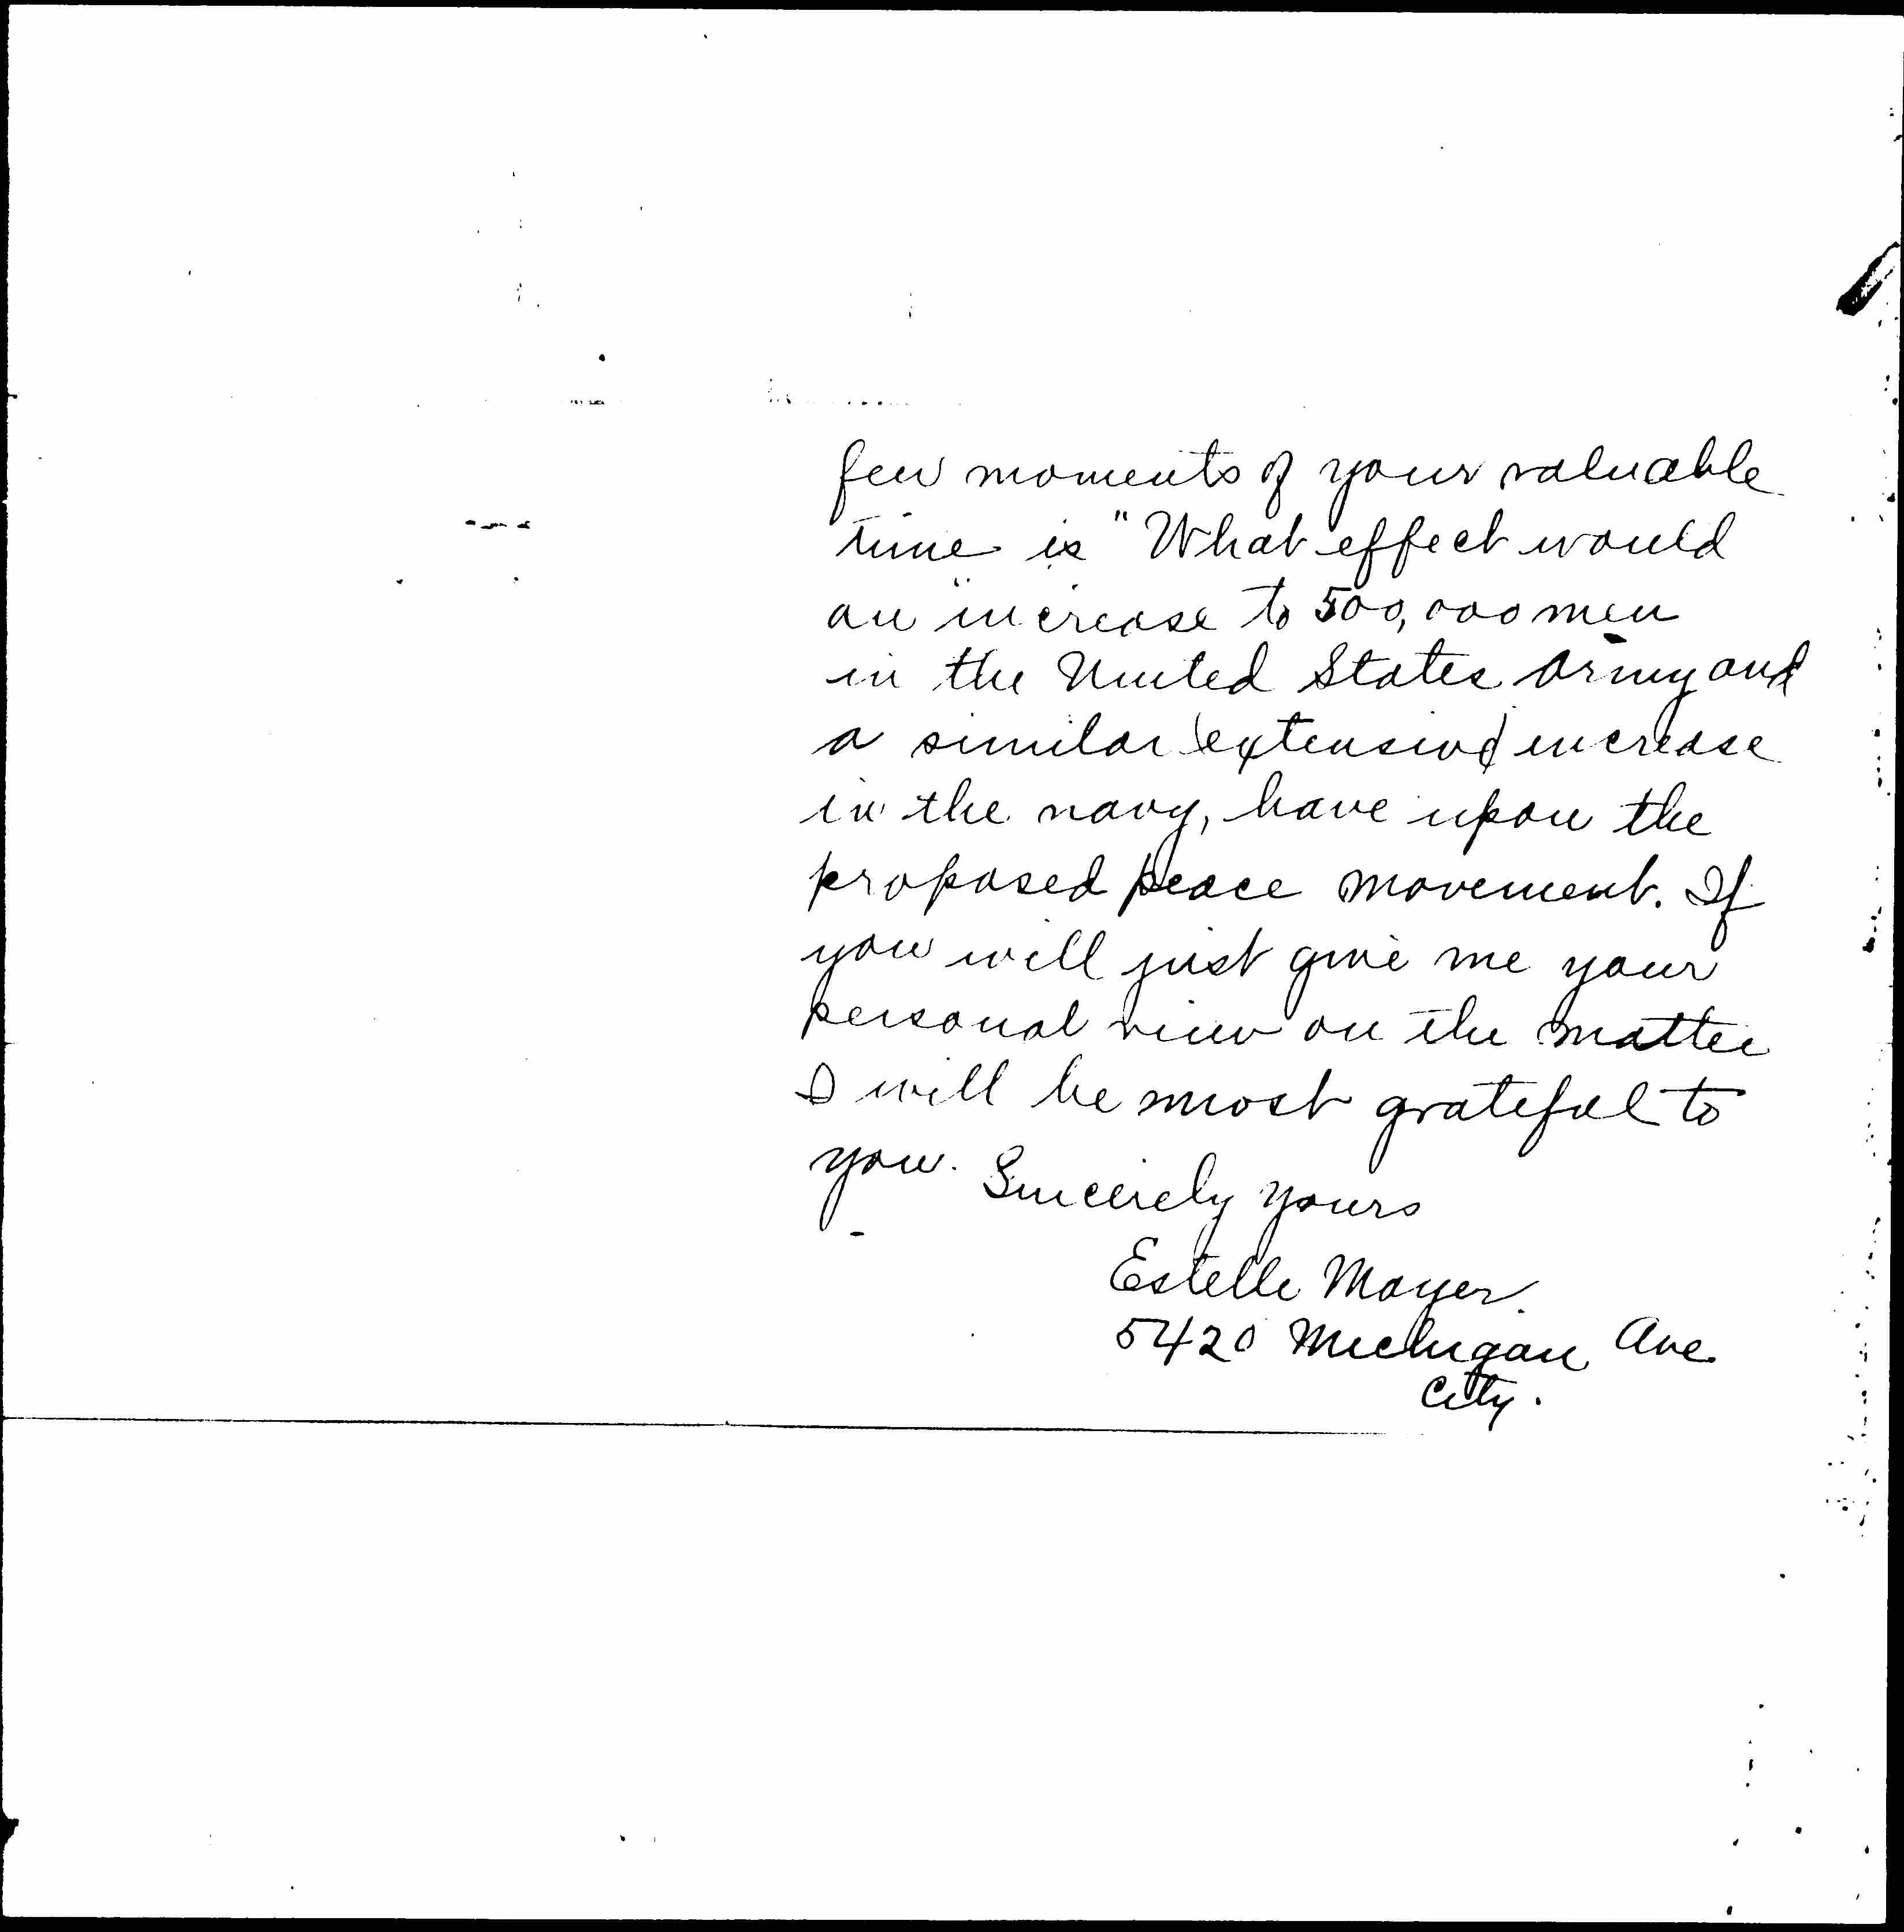 few moments of your valuable
time is "What effect would
an increase to 500,000 men
in the United States Army and
a similar (extensive) increase
in the navy, have upon the
proposed peace movement. If
you will just give me your
personal view on the matter
I will be most grateful to
you.
Sincerely yours
Estelle Mayer.
5420 Michigan Ave.
City.